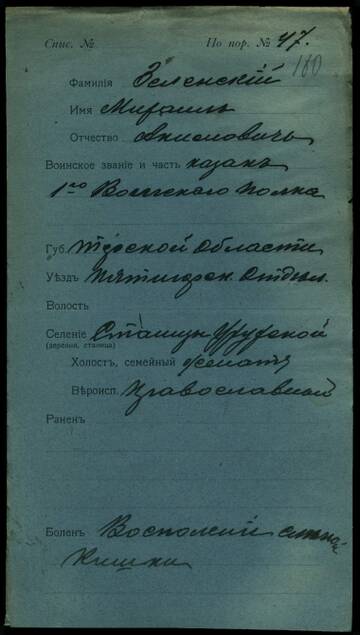 Спис. № По пор. № 47.
180
Фамилія Зеленскій
Имя Михаилъ
Отчество
Воинское званіе и часть казакъ
1го Волгскаго Полка
Губ. Терской Области
Уѣздъ Пятигорск. Отдѣл.
Волость
Селеніе Станицы Урухской
(деревня, станица)
Холостъ, семейный женатъ
Вѣроисп. Православный
Раненъ
Боленъ слѣпой
Кишки